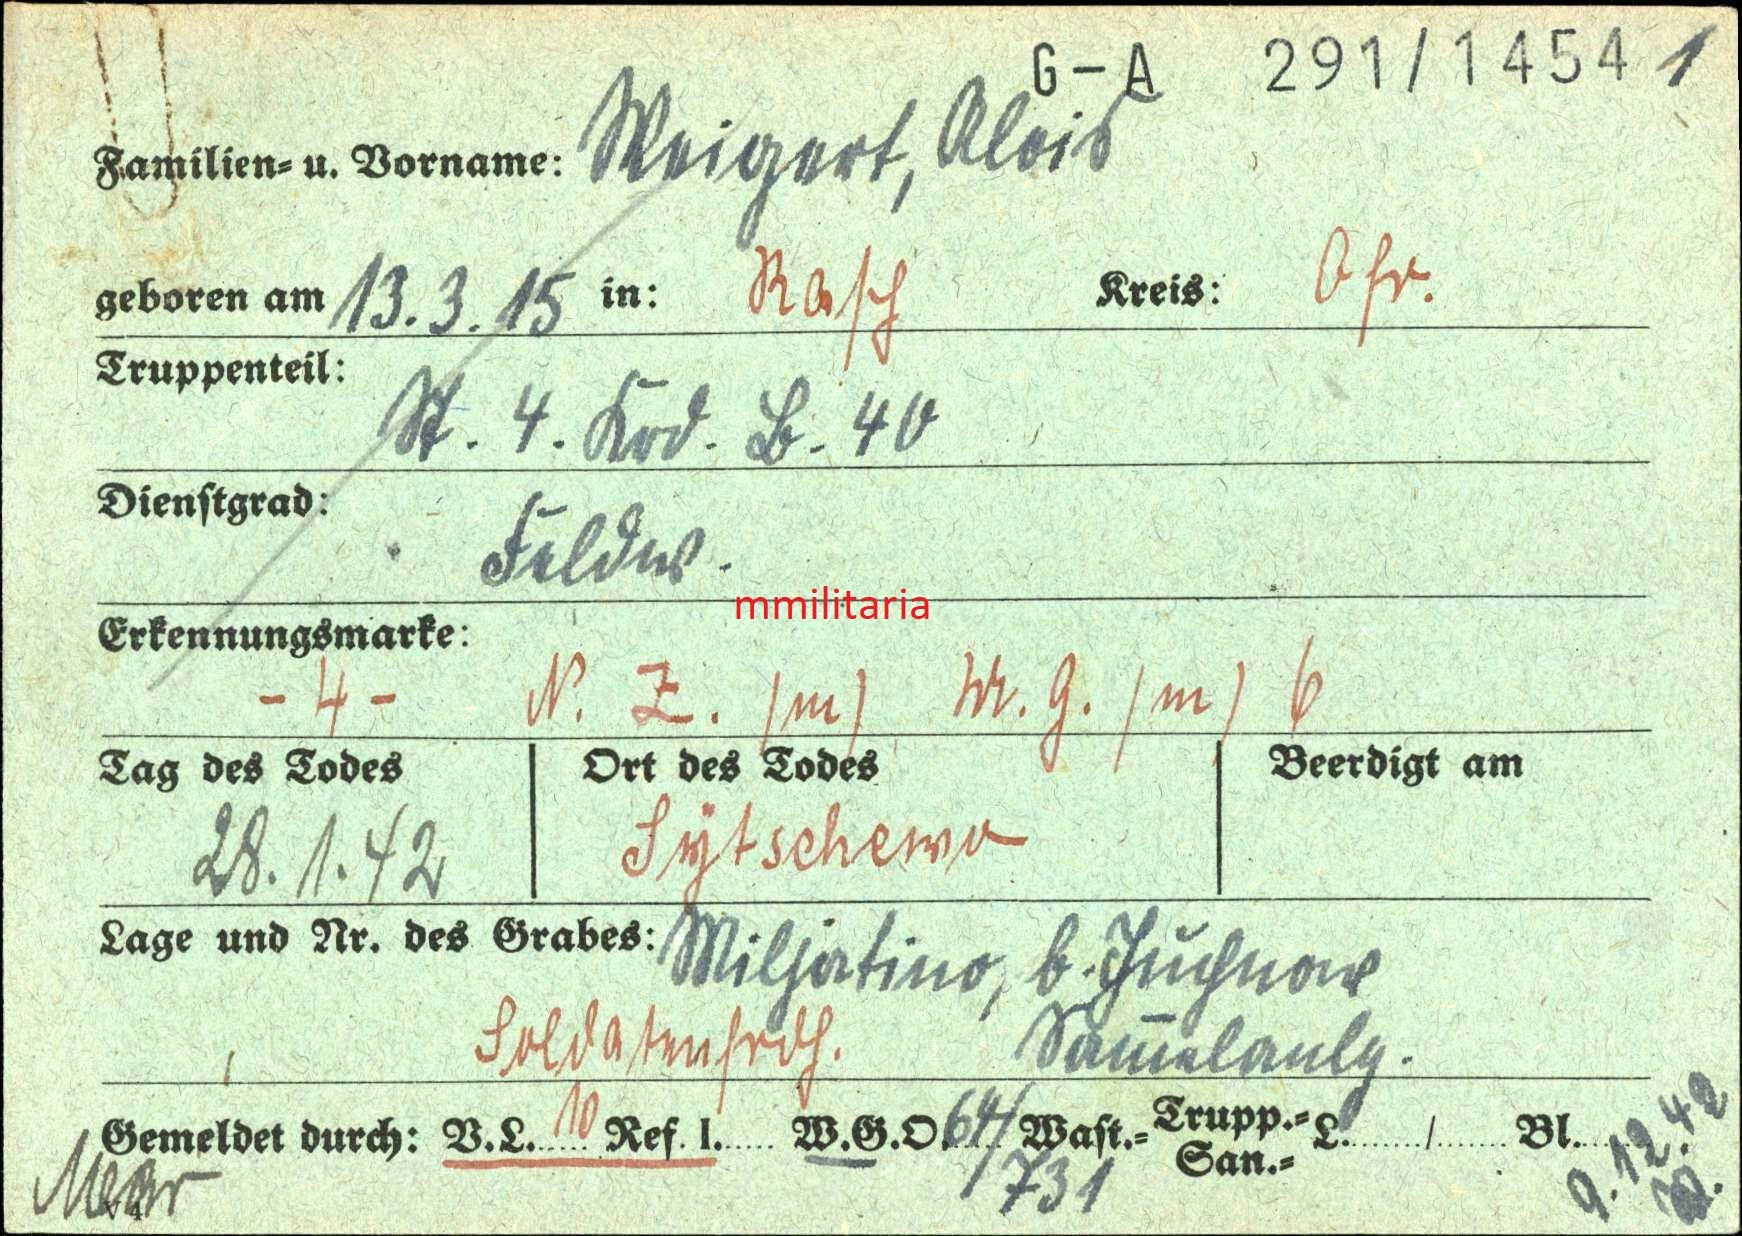 G-A 291/1454 1
Familien- u. Vorname: Weigert, Alois
geboren am 13.3.15 in: Rasch Kreis: Ofr.
Truppenteil:
St. 4. Krd. B. 40
Dienstgrad:
Feldw.
mmilitaria
Erkennungsmarke:
- 4 - N. Z. (m) W. G. (m) 6
Tag des Todes Ort des Todes Beerdigt am
28.1.42 Sÿtschewo
Lage und Nr. des Grabes: Miljatino, b. Juchnow
Soldatenfrdh. Sam̄elanlg.
Gemeldet durch: V.L. 10 Ref. I. W.G.O. 64/ Wast.- Trupp.- L. / Bl.
San.-
731
9.12.42